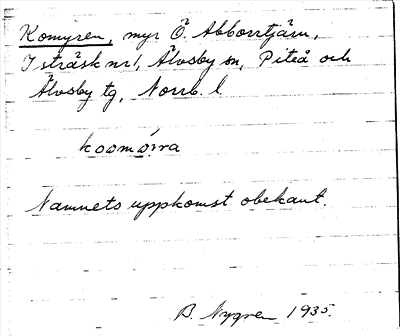 Komyren, myr Ö. Abborrtjärn,
Isträsk nr 1, Älvsby sn, Piteå och
Älvsby tg, Norrb. l.
koomỳrra
Namnets uppkomst obekant.
B. Nygren 1935.